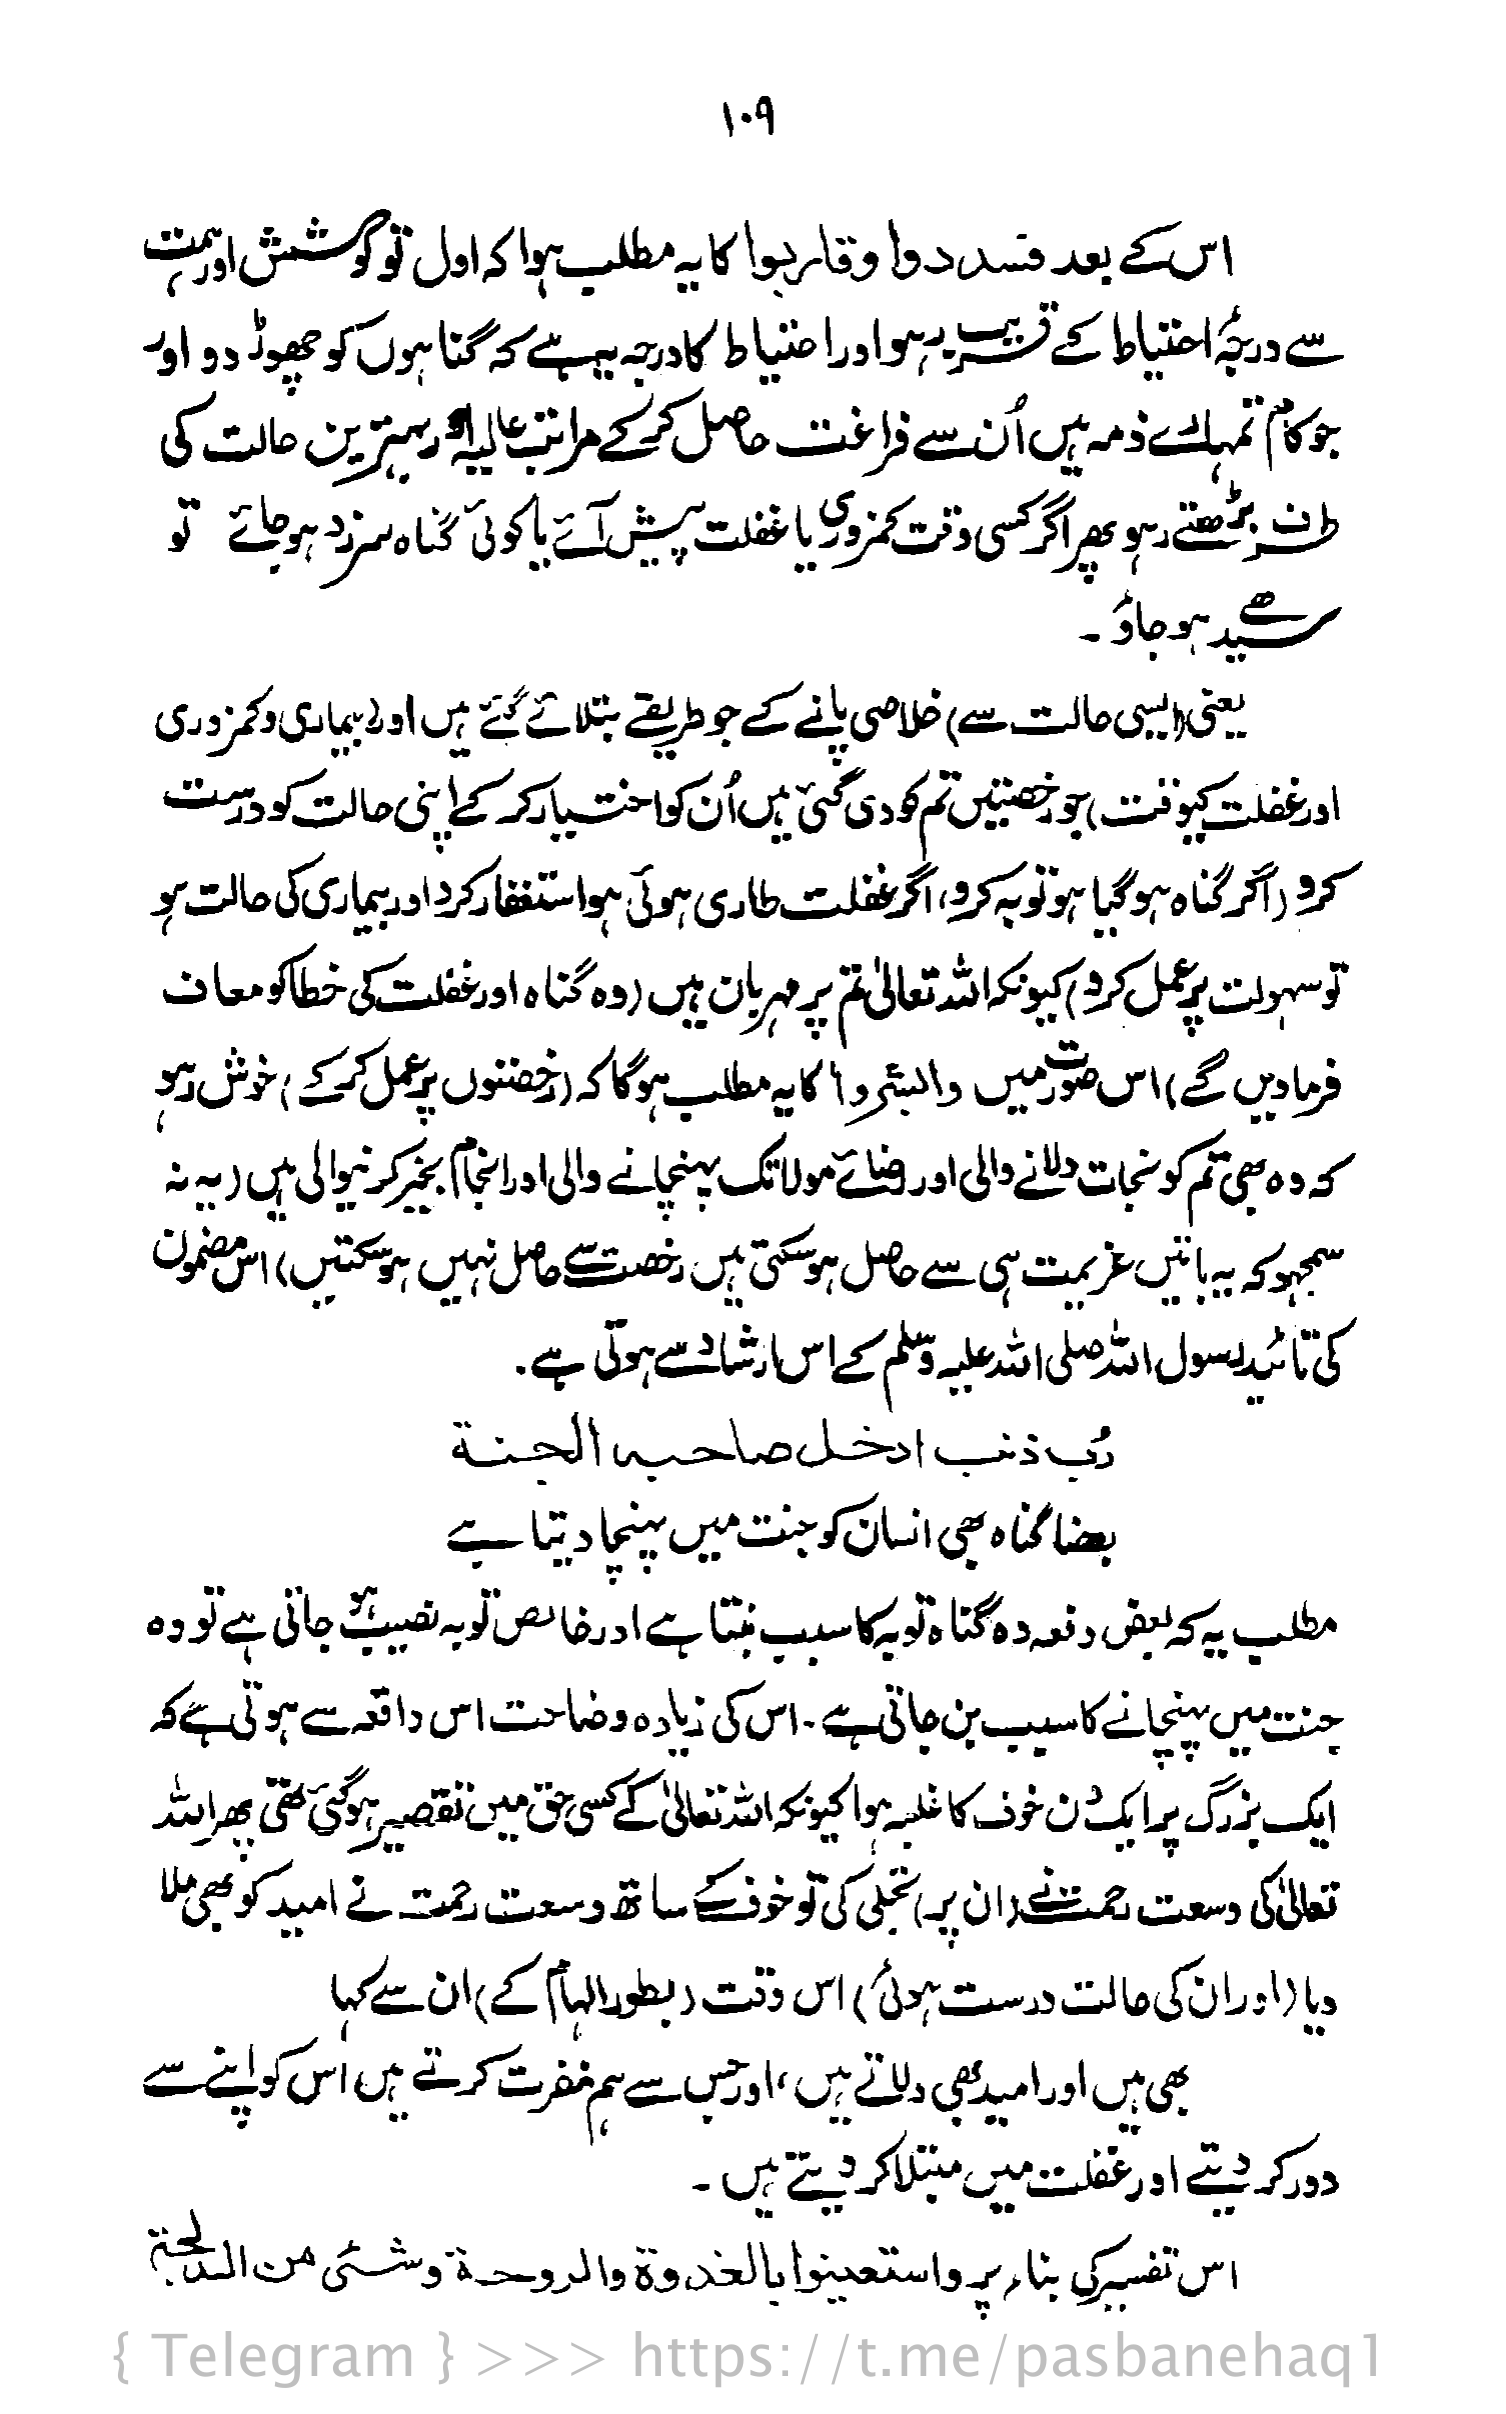 ۱۰۹
اس کے بعد فسددوا وقاربوا کا یہ مطلب ہوا کہ اول تو کوشش اور ہمت
سے درجۂ احتیاط کے قریب رہو اور احتیاط کا درجہ یہ ہے کہ گناہوں کو چھوڑ دو اور
جو کام تمہارے ذمہ ہیں اُن سے فراغت حاصل کر کے مراتب عالیہ اور بہترین حالت کی
طرف بڑھتے رہو پھر اگر کسی وقت کمزوری یا غفلت پیش آئے یا کوئی گناہ سرزد ہو جائے تو
سیدھے ہو جاؤ ۔
یعنی (ایسی حالت سے) خلاصی پانے کے جو طریقے بتلائے گئے ہیں اور (بیماری و کمزوری
اور غفلت کیوقت) جو رخصتیں تم کو دی گئی ہیں اُن کو اختیار کر کے اپنی حالت کو درست
کرو (اگر گناہ ہو گیا ہو تو توبہ کرو، اگر غفلت طاری ہوئی ہو استغفار کرو اور بیماری کی حالت ہو
تو سہولت پر عمل کرو) کیونکہ اللہ تعالیٰ تم پر مہربان ہیں (وہ گناہ اور غفلت کی خطا کو معاف
فرما دیں گے) اس صورت میں والبشروا کا یہ مطلب ہو گا کہ (رخصتوں پر عمل کر کے) خوش رہو
کہ وہ بھی تم کو نجات دلانے والی اور رضائے مولا تک پہنچانے والی اور انجام بخیر کرنیوالی ہیں (یہ نہ
سمجھو کہ یہ باتیں عزیمت ہی سے حاصل ہو سکتی ہیں رخصت سے حاصل نہیں ہو سکتیں) اس مضمون
کی تائید رسول اللہ صلی اللہ علیہ وسلم کے اس ارشاد سے ہوتی ہے.
رُب ذنب ادخل صاحبہ الجنة
بعضا گناہ بھی انسان کو جنت میں پہنچا دیتا ہے
مطلب یہ کہ بعض دفعہ وہ گناہ توبہ کا سبب بنتا ہے اور خالص توبہ نصیب ہو جاتی ہے تو وہ
جنت میں پہنچانے کا سبب بن جاتی ہے ۔ اس کی زیادہ وضاحت اس واقعہ سے ہوتی ہے کہ
ایک بزرگ پر ایک دن خوف کا غلبہ ہوا کیونکہ اللہ تعالیٰ کے کسی حق میں تقصیر ہو گئی تھی پھر اللہ
تعالیٰ کی وسعت رحمت نے (ان پر) تجلی کی تو خوف کے ساتھ وسعت رحمت نے امید کو بھی ملا
دیا (اور ان کی حالت درست ہوئی) اس وقت (بطور الہام کے) ان سے کہا
بھی ہیں اور امید بھی دلاتے ہیں، اور جس سے ہم نفرت کرتے ہیں اس کو اپنے سے
دور کر دیتے اور غفلت میں مبتلا کر دیتے ہیں ۔
اس تفسیر کی بناء پر واستعینوا بالغدوة والروحة وشئی من الدلجة
{ Telegram } >>> https://t.me/pasbanehaq1